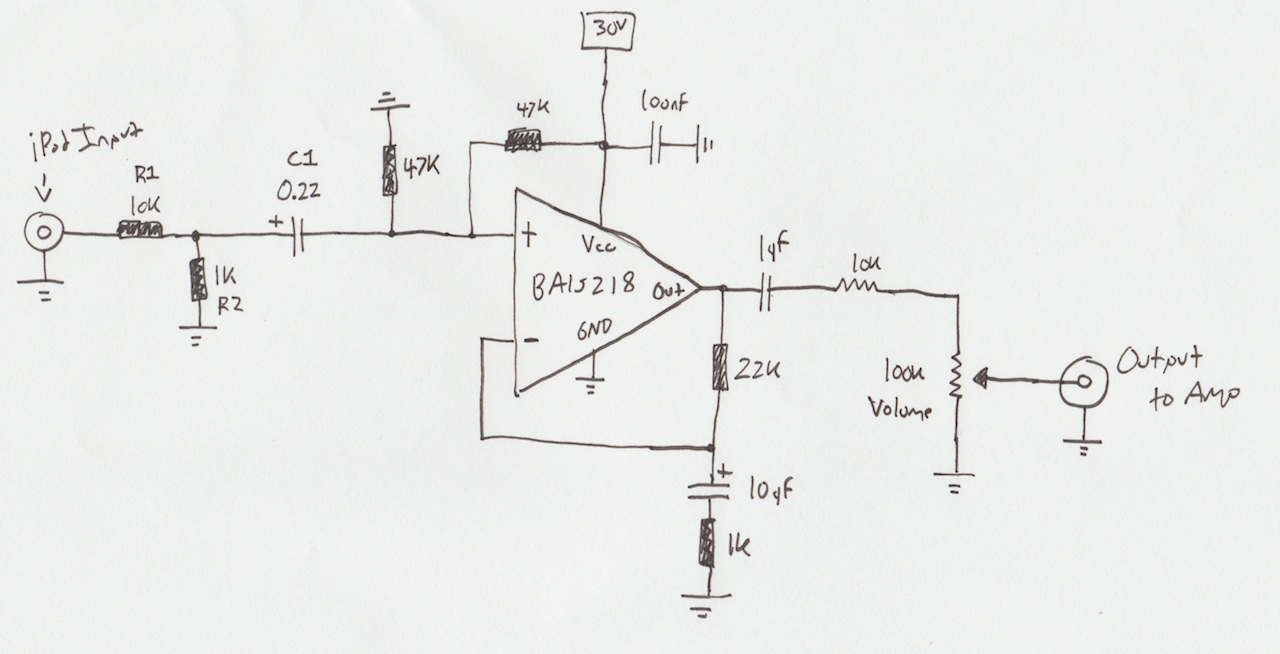 30V
iPod Input
R1
10K
C1
0.22
+
1K
R2
47K
47K
100nF
+
-
Vcc
BA15218
Out
GND
1μF
10K
22K
100K
Volume
Output
to Amp
+
10μF
1K